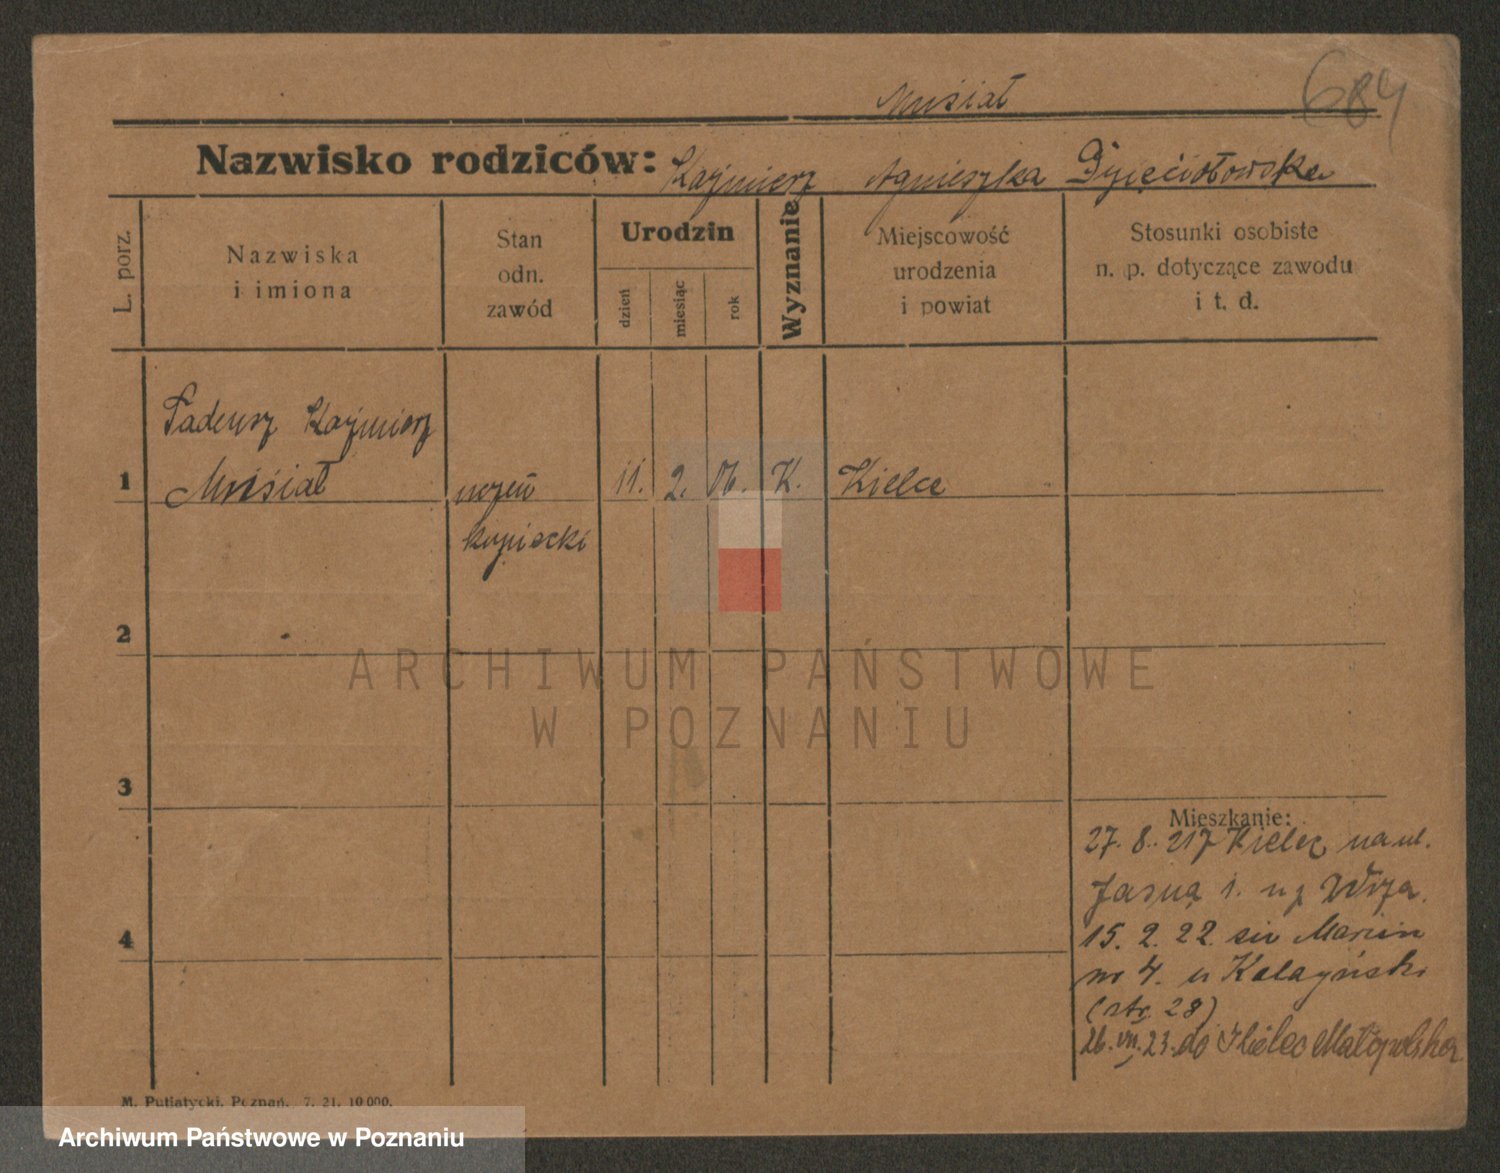 Musiał
684
Nazwisko rodziców: Kaźmierz Agnieszka Dzięciołowska
L. porz.
Nazwiska
i imiona
Stan
odn.
zawód
Urodzin
dzień
miesiąc
rok
Wyznanie
Miejscowość
urodzenia
i powiat
Stosunki osobiste
n. p. dotyczące zawodu
i t. d.
Tadeusz Kaźmierz
1 Musiał uczeń 11. 2. 06. K. Kielce
kupiecki
2
ARCHIWUM PAŃSTWOWE
W POZNANIU
3
Mieszkanie:
27. 8. 21 z Kielc na ul.
Jasną 1. u p.
4
15. 2. 22. św Marcin
nr 4. u
(str. 28)
26. VII. 23. do Kielce Małopolska
M. Putiatycki, Poznań. 7. 21. 10 000.
Archiwum Państwowe w Poznaniu